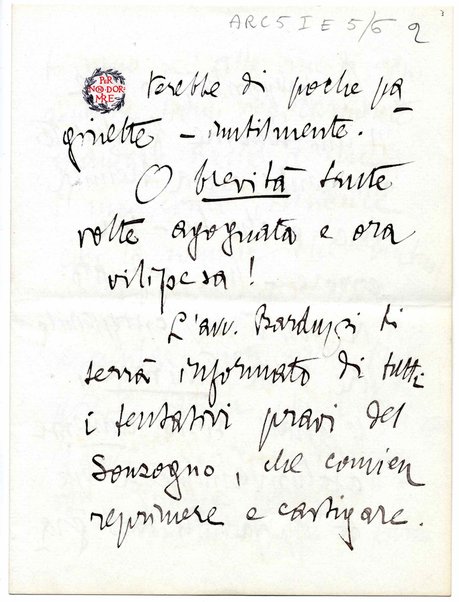 ARC 5 I E 5/6 2
PER
NON DOR
MIRE
terebbe di poche pa
ginette – inutilmente.
O brevità tante
volte agognata e ora
vilipesa!
L'avv. Barduzzi ti
terrà informato di tutti
i tentativi pravi del
Sonzogno, che convien
reprimere e castigare.